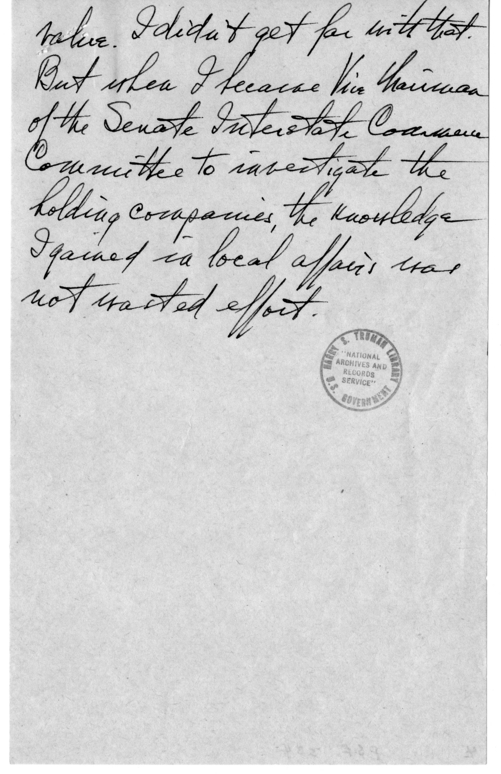 value. I didn't get far with that.
But when I became Vice Chairman
of the Senate Interstate Commerce
Committee to investigate the
holding companies, the knowledge
I gained in local affairs was
not wasted effort.
HARRY S. TRUMAN LIBRARY
"NATIONAL
ARCHIVES AND
RECORDS
SERVICE"
U.S. GOVERNMENT